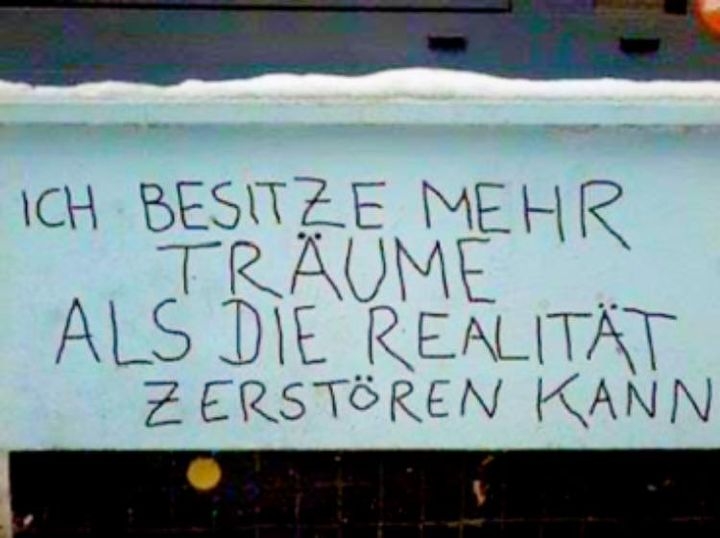 ICH BESITZE MEHR
TRÄUME
ALS DIE REALITÄT
ZERSTÖREN KANN